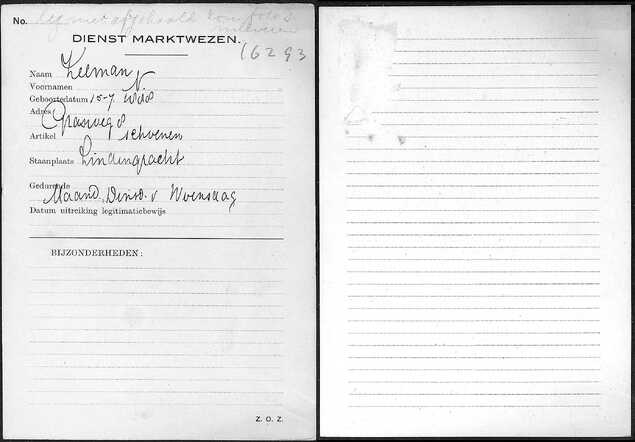 No. zelf niet afgehaald kon foto's
inleveren
DIENST MARKTWEZEN.
16293
Naam Zeeman
Voornamen N
Geboortedatum 15-7
Adres Grasweg 8
Artikel schoenen
Staanplaats Lindengracht
Gedurende Maand. Dinsd. v Woensdag
Datum uitreiking legitimatiebewijs
BIJZONDERHEDEN:
Z. O. Z.